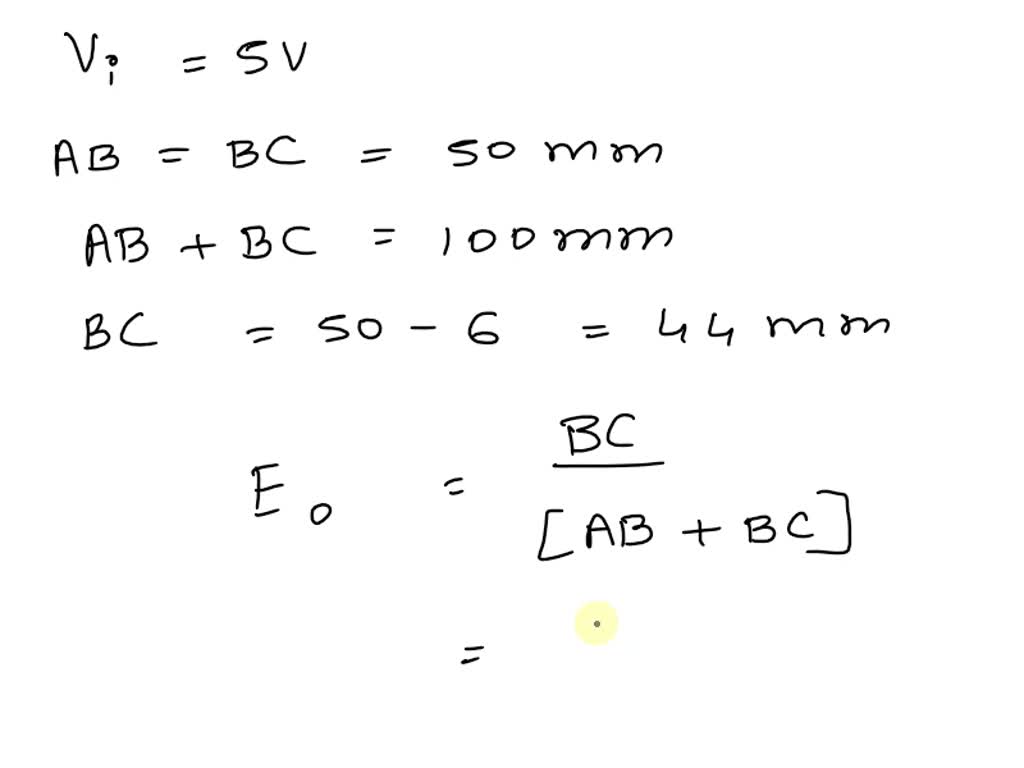 Vi = 5V
AB = BC = 50 mm
AB + BC = 100 mm
BC = 50 - 6 = 44 mm
E0 = BC / [AB + BC]
=